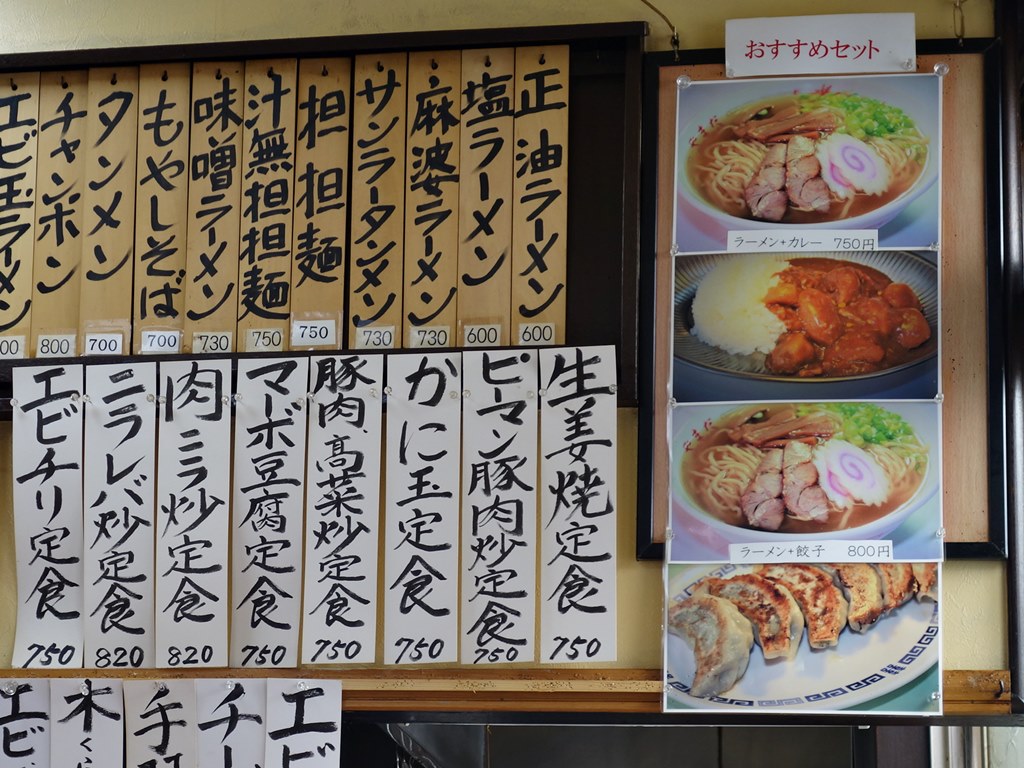 おすすめセット
ラーメン+カレー 750円
ラーメン+餃子 800円
正油ラーメン 600
塩ラーメン 600
麻波ラーメン 730
サンラータンメン 730
担担麺 750
汁無担担麺 750
味噌ラーメン 730
もやしそば 700
タンメン 700
チャンポン 800
エビ玉ラーメン
生姜焼定食 750
ピーマン豚肉炒定食 750
かに玉定食 750
豚肉、高菜炒定食 750
マーボ豆腐定食 750
肉ニラ炒定食 820
ニラレバ炒定食 820
エビチリ定食 750